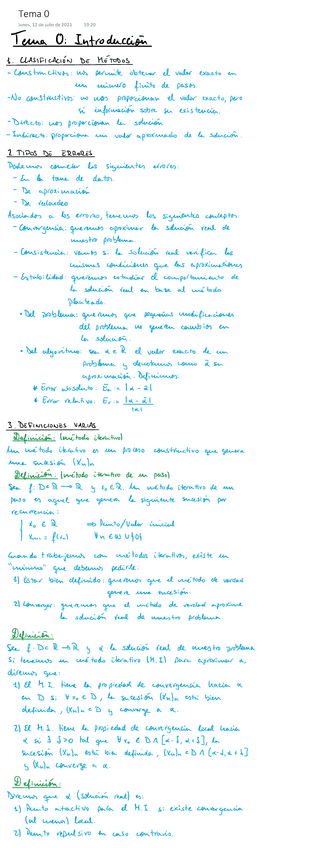 Tema 0
lunes, 12 de julio de 2021 19:29
Tema 0: Introducción
1. CLASIFICACIÓN DE MÉTODOS
- Constructivos: nos permite obtener el valor exacto en
un número finito de pasos.
- No constructivos: no nos proporcionan el valor exacto, pero
sí información sobre su existencia.
- Directo: nos proporcionan la solución
- Indirecto: proporciona un valor aproximado de la solución.
2. TIPOS DE ERRORES
Podemos cometer los siguientes errores:
- En la toma de datos.
- De aproximación
- De redondeo
Asociados a los errores, tenemos los siguientes conceptos:
- Convergencia: queremos aproximar la solución real de
nuestro problema.
- Consistencia: vemos si la solución real verifica las
mismas condiciones que las aproximaciones
- Estabilidad: queremos estudiar el comportamiento de
la solución real en base al método
planteado.
• Del problema: queremos que pequeñas modificaciones
del problema no generen cambios en
la solución.
• Del algoritmo: sea α ∈ ℝ el valor exacto de un
problema y denotamos como ã su
aproximación. Definimos:
* Error absoluto: Ea := |α - ã|
* Error relativo: Er := |α - ã| / |α|
3. DEFINICIONES VARIAS
Definición: (método iterativo)
Un método iterativo es un proceso constructivo que genera
una sucesión {Xn}n
Definición: (método iterativo de un paso)
Sea f: D⊂ℝ → ℝ y x₀ ∈ ℝ. Un método iterativo de un
paso es aquel que genera la siguiente sucesión por
recurrencia:
x₀ ∈ ℝ ⇒ Punto/Valor inicial
xn+1 = f(xn) ∀n ∈ ℕ ∪ {0}
Cuando trabajemos con métodos iterativos, existe un
"mínimo" que debemos pedirle:
1) Estar bien definido: queremos que el método de verdad
genere una sucesión.
2) Converger: queremos que el método de verdad aproxime
la solución real de nuestro problema.
Definición:
Sea f: D⊂ℝ → ℝ y α la solución real de nuestro problema
Si tenemos un método iterativo (M.I) para aproximar α,
diremos que:
1) El M.I. tiene la propiedad de convergencia hacia α
en D si ∀x₀ ∈ D, la sucesión {Xn}n está bien
definida, {Xn}n ⊂ D y converge a α.
2) El M.I. tiene la propiedad de convergencia local hacia
α si ∃ δ>0 tal que ∀x₀ ∈ D ∩ [α-δ, α+δ], la
sucesión {Xn}n está bien definida, {Xn}n ⊂ D ∩ [α-δ, α+δ]
y {Xn}n converge a α.
Definición:
Diremos que α (solución real) es:
1) Punto atractivo para el M.I. si existe convergencia
(al menos) local.
2) Punto repulsivo en caso contrario.